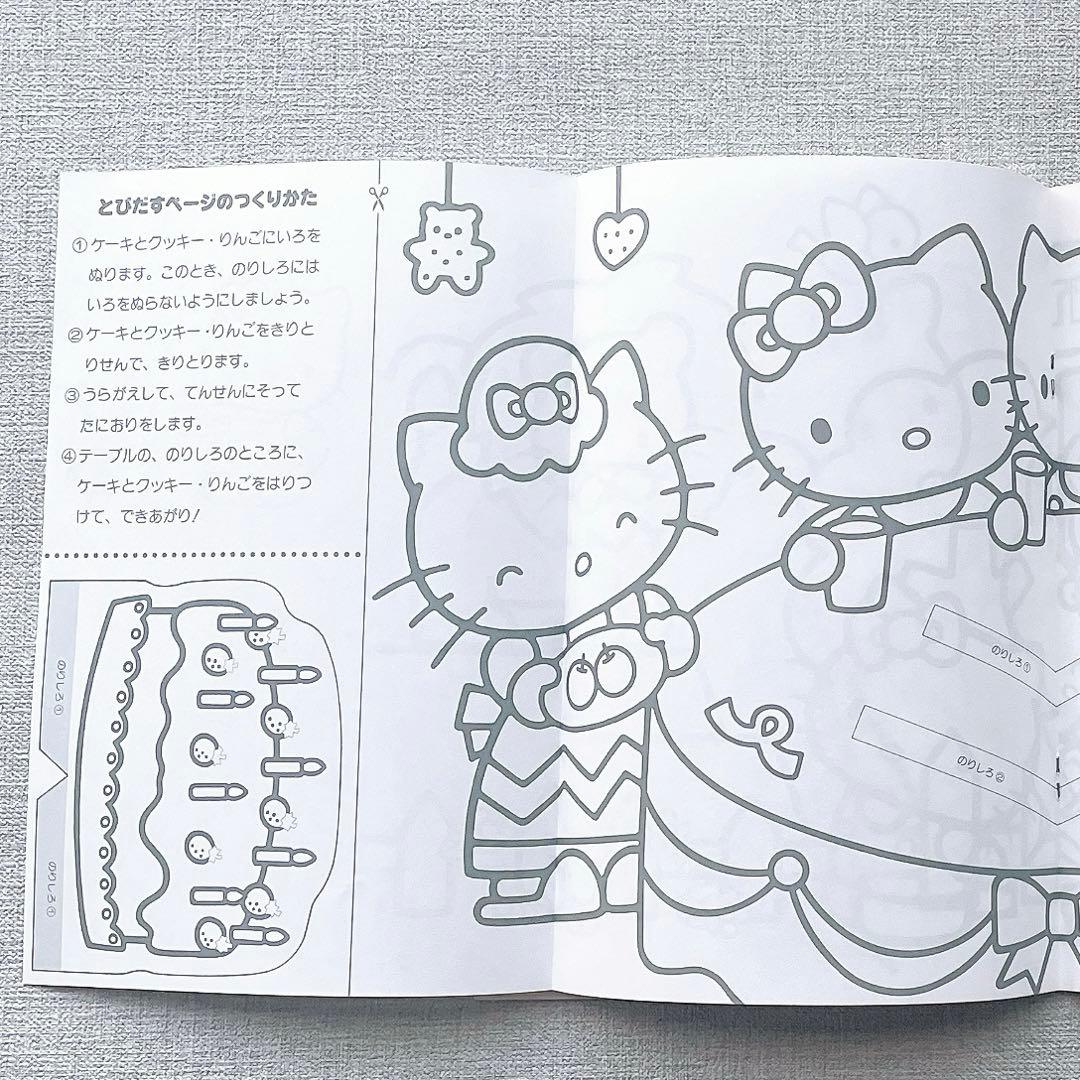 とびだすページのつくりかた
①ケーキとクッキー・りんごにいろを
ぬります。このとき、のりしろには
いろをぬらないようにしましょう。
②ケーキとクッキー・りんごをきりと
りせんで、きりとります。
③うらがえして、てんせんにそって
たにおりをします。
④テーブルの、のりしろのところに、
ケーキとクッキー・りんごをはりつ
けて、できあがり!
のりしろ①
のりしろ①
のりしろ①
のりしろ②